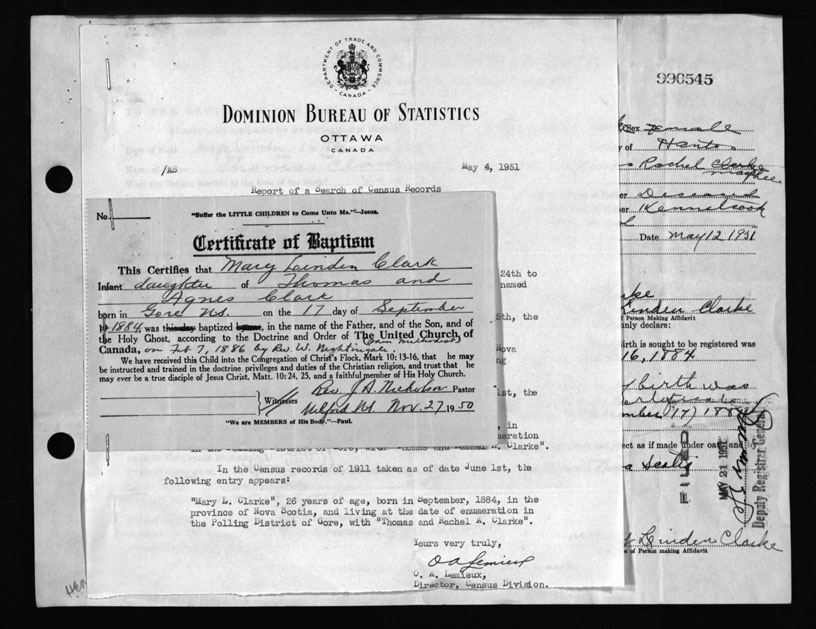 DEPARTMENT OF TRADE AND COMMERCE
CANADA
DOMINION BUREAU OF STATISTICS
OTTAWA
CANADA
/AS
May 4, 1951
Report of a Search of Census Records
No.
"Suffer the LITTLE CHILDREN to Come Unto Me."—Jesus.
Certificate of Baptism
This Certifies that Mary Linden Clark
Infant daughter of Thomas and
Agnes Clark
born in Gore N.S. on the 17 day of September
1884, was baptized, in the name of the Father, and of the Son, and of
the Holy Ghost, according to the Doctrine and Order of The United Church of
Canada, on Feb 7, 1886 by Rev. W. Nightingale
We have received this Child into the Congregation of Christ's Flock, Mark 10: 13-16, that he may
be instructed and trained in the doctrine, privileges and duties of the Christian religion, and trust that he
may ever be a true disciple of Jesus Christ, Matt. 10: 24, 25, and a faithful member of His Holy Church.
Rev J. A. Nicholson Pastor
Witnesses
Milford N.S. Nov. 27 1950
"We are MEMBERS of His Body."—Paul.
24th to
named
5th, the
Nova
ng
1st, the
, in
meration
Clarke".
In the Census records of 1911 taken as of date June 1st, the
following entry appears:
"Mary L. Clarke", 26 years of age, born in September, 1884, in the
province of Nova Scotia, and living at the date of enumeration in
the Polling District of Gore, with "Thomas and Rachel A. Clarke".
Yours very truly,
O A Lemieux
O. A. Lemieux,
Director, Census Division.
990545
Sex Female
of Hants
Rachel Clarke
Deceased
Kennetcook
Date May 12 1951
rke
Linden Clarke
of Person Making Affidavit
nly declare:
Birth is sought to be registered was
16, 1884
birth was
ber 17) 1884
ect as if made under oath and by
Scotia
FILED
MAY 21 1951
Deputy Registrar General
Linden Clarke
of Person making Affidavit